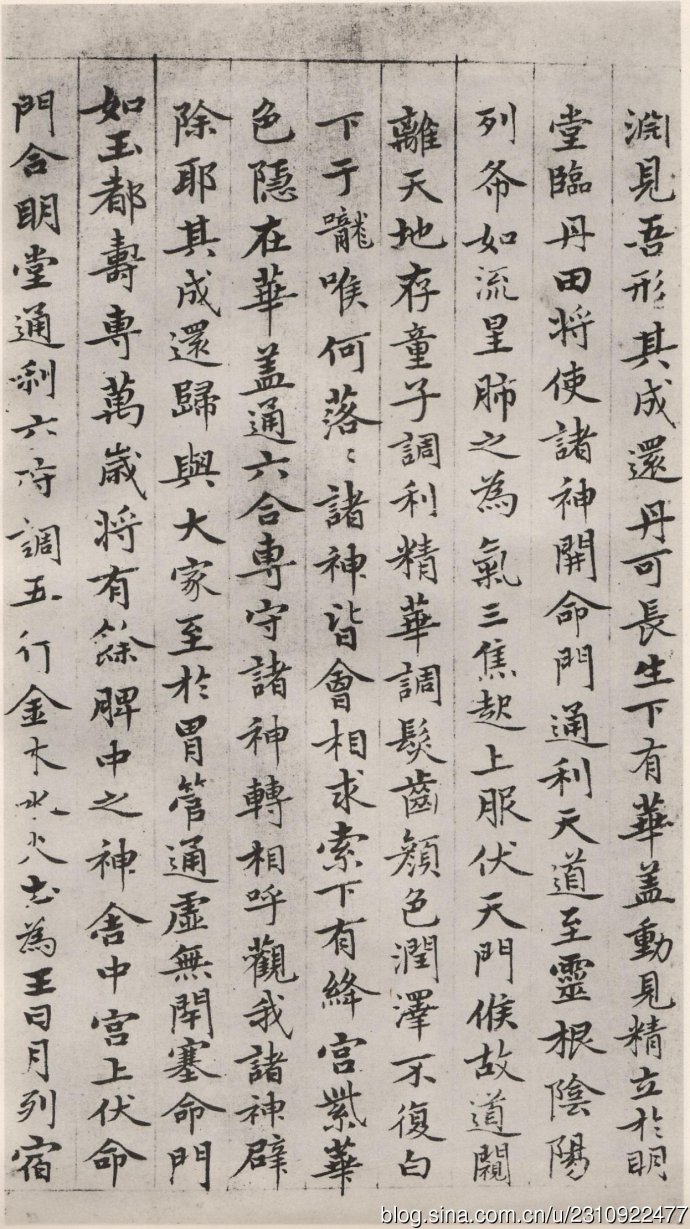 淵見吾形其成還丹可長生下有華盖動見精立於明
堂臨丹田将使諸神開命門通利天道至靈根陰陽
列布如流星肺之為氣三焦起上服伏天門候故道闚
離天地存童子調利精華調髮齒顔色潤澤不復白
下于嚨喉何落〻諸神皆會相求索下有絳宮紫華
色隱在華盖通六合專守諸神轉相呼觀我諸神辟
除耶其成還歸與大家至於胃管通虛無閉塞命門
如玉都壽專萬歲将有餘脾中之神舎中宮上伏命
門合明堂通利六府調五行金木水火土為王日月列宿
blog.sina.com.cn/u/2310922477